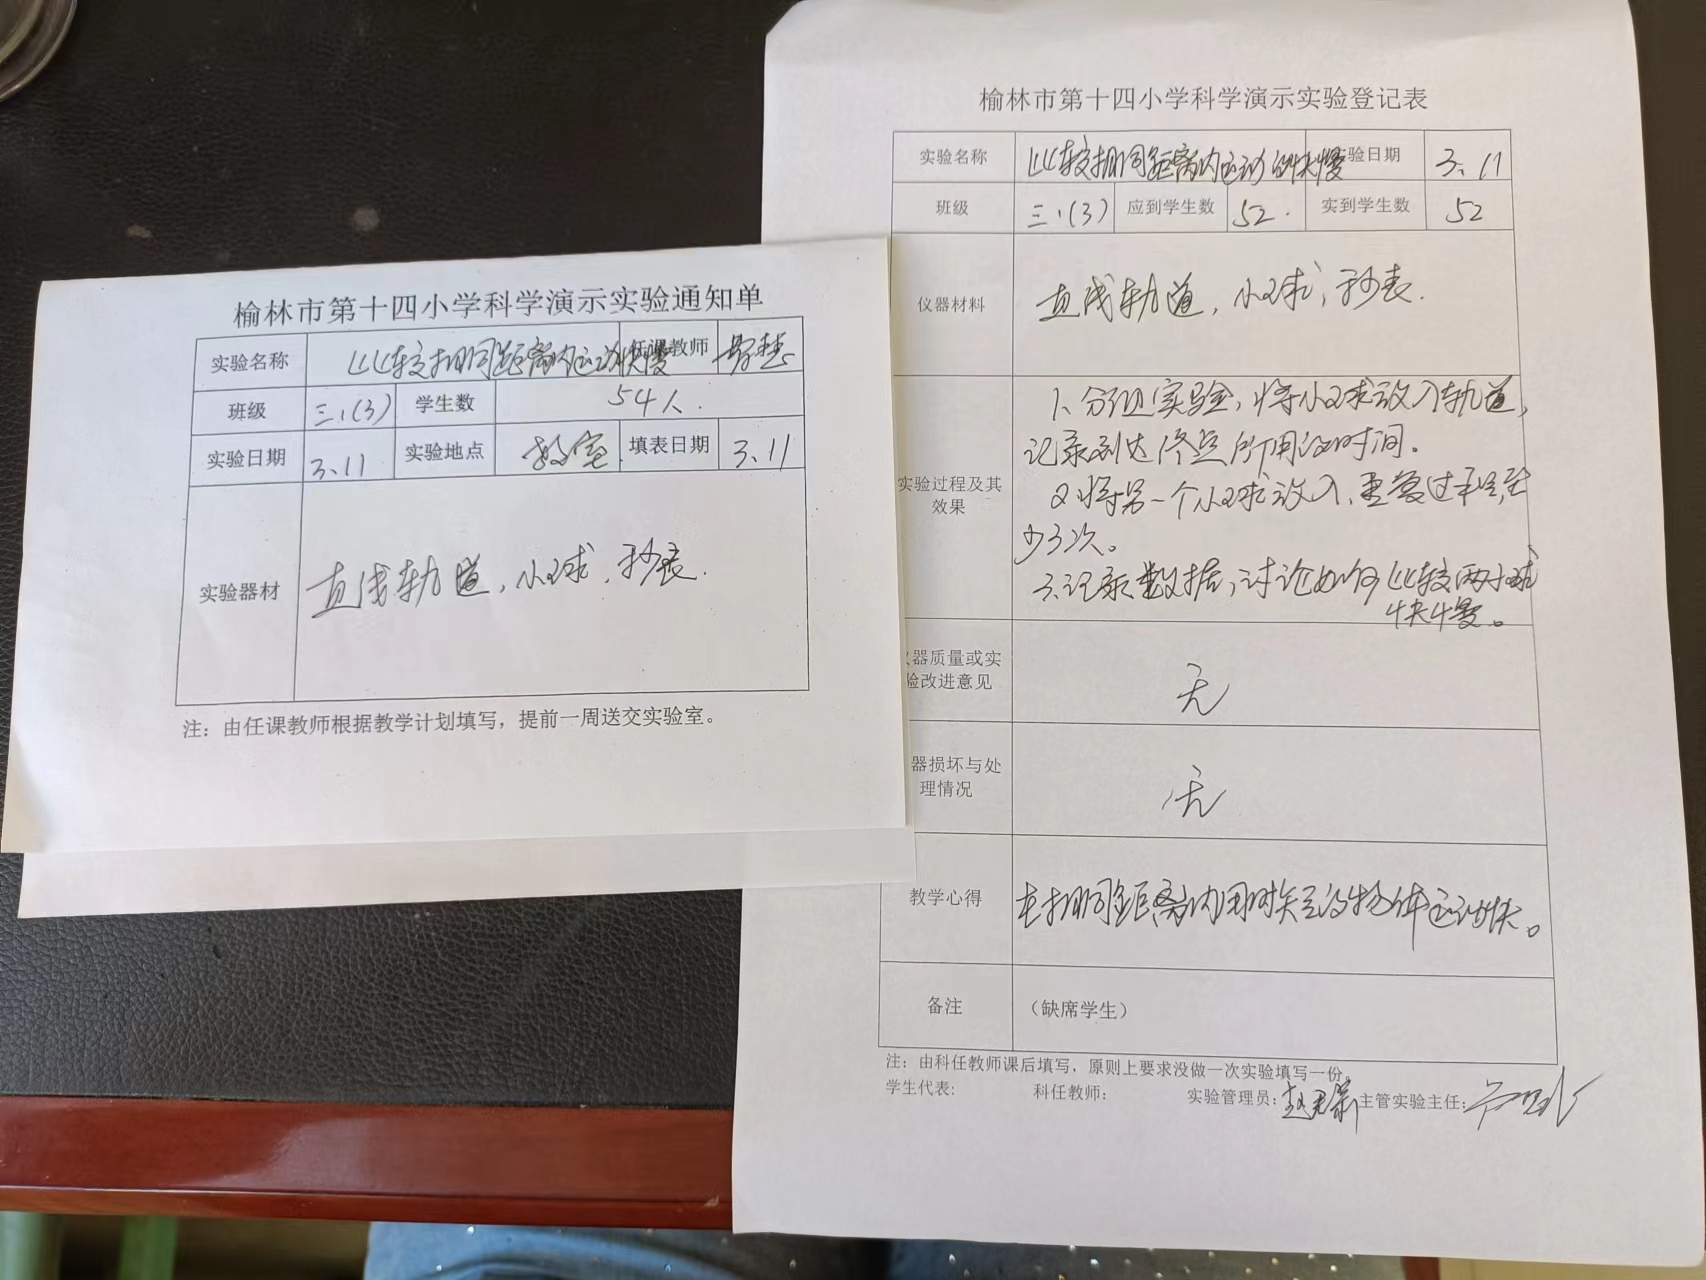 榆林市第十四小学科学演示实验通知单
实验名称 比较相同距离内运动快慢 任课教师
班级 三.(3) 学生数 54人.
实验日期 3.11 实验地点 教室 填表日期 3.11
实验器材 直线轨道,小球,秒表.
注：由任课教师根据教学计划填写，提前一周送交实验室。
榆林市第十四小学科学演示实验登记表
实验名称 比较相同距离内运动的快慢 验日期 3.11
班级 三.(3) 应到学生数 52. 实到学生数 52
仪器材料 直线轨道,小球,秒表.
实验过程及其
效果
1、分组实验,将小球放入轨道,
记录到达终点所用的时间。
2将另一个小球放入,重复过程,至
少3次。
3.记录数据,讨论如何比较两小球
快慢。
器质量或实
验改进意见
无
器损坏与处
理情况
无
教学心得 在相同距离内用时短的物体运动快。
备注 （缺席学生）
注：由科任教师课后填写，原则上要求没做一次实验填写一份。
学生代表: 科任教师: 实验管理员: 主管实验主任: